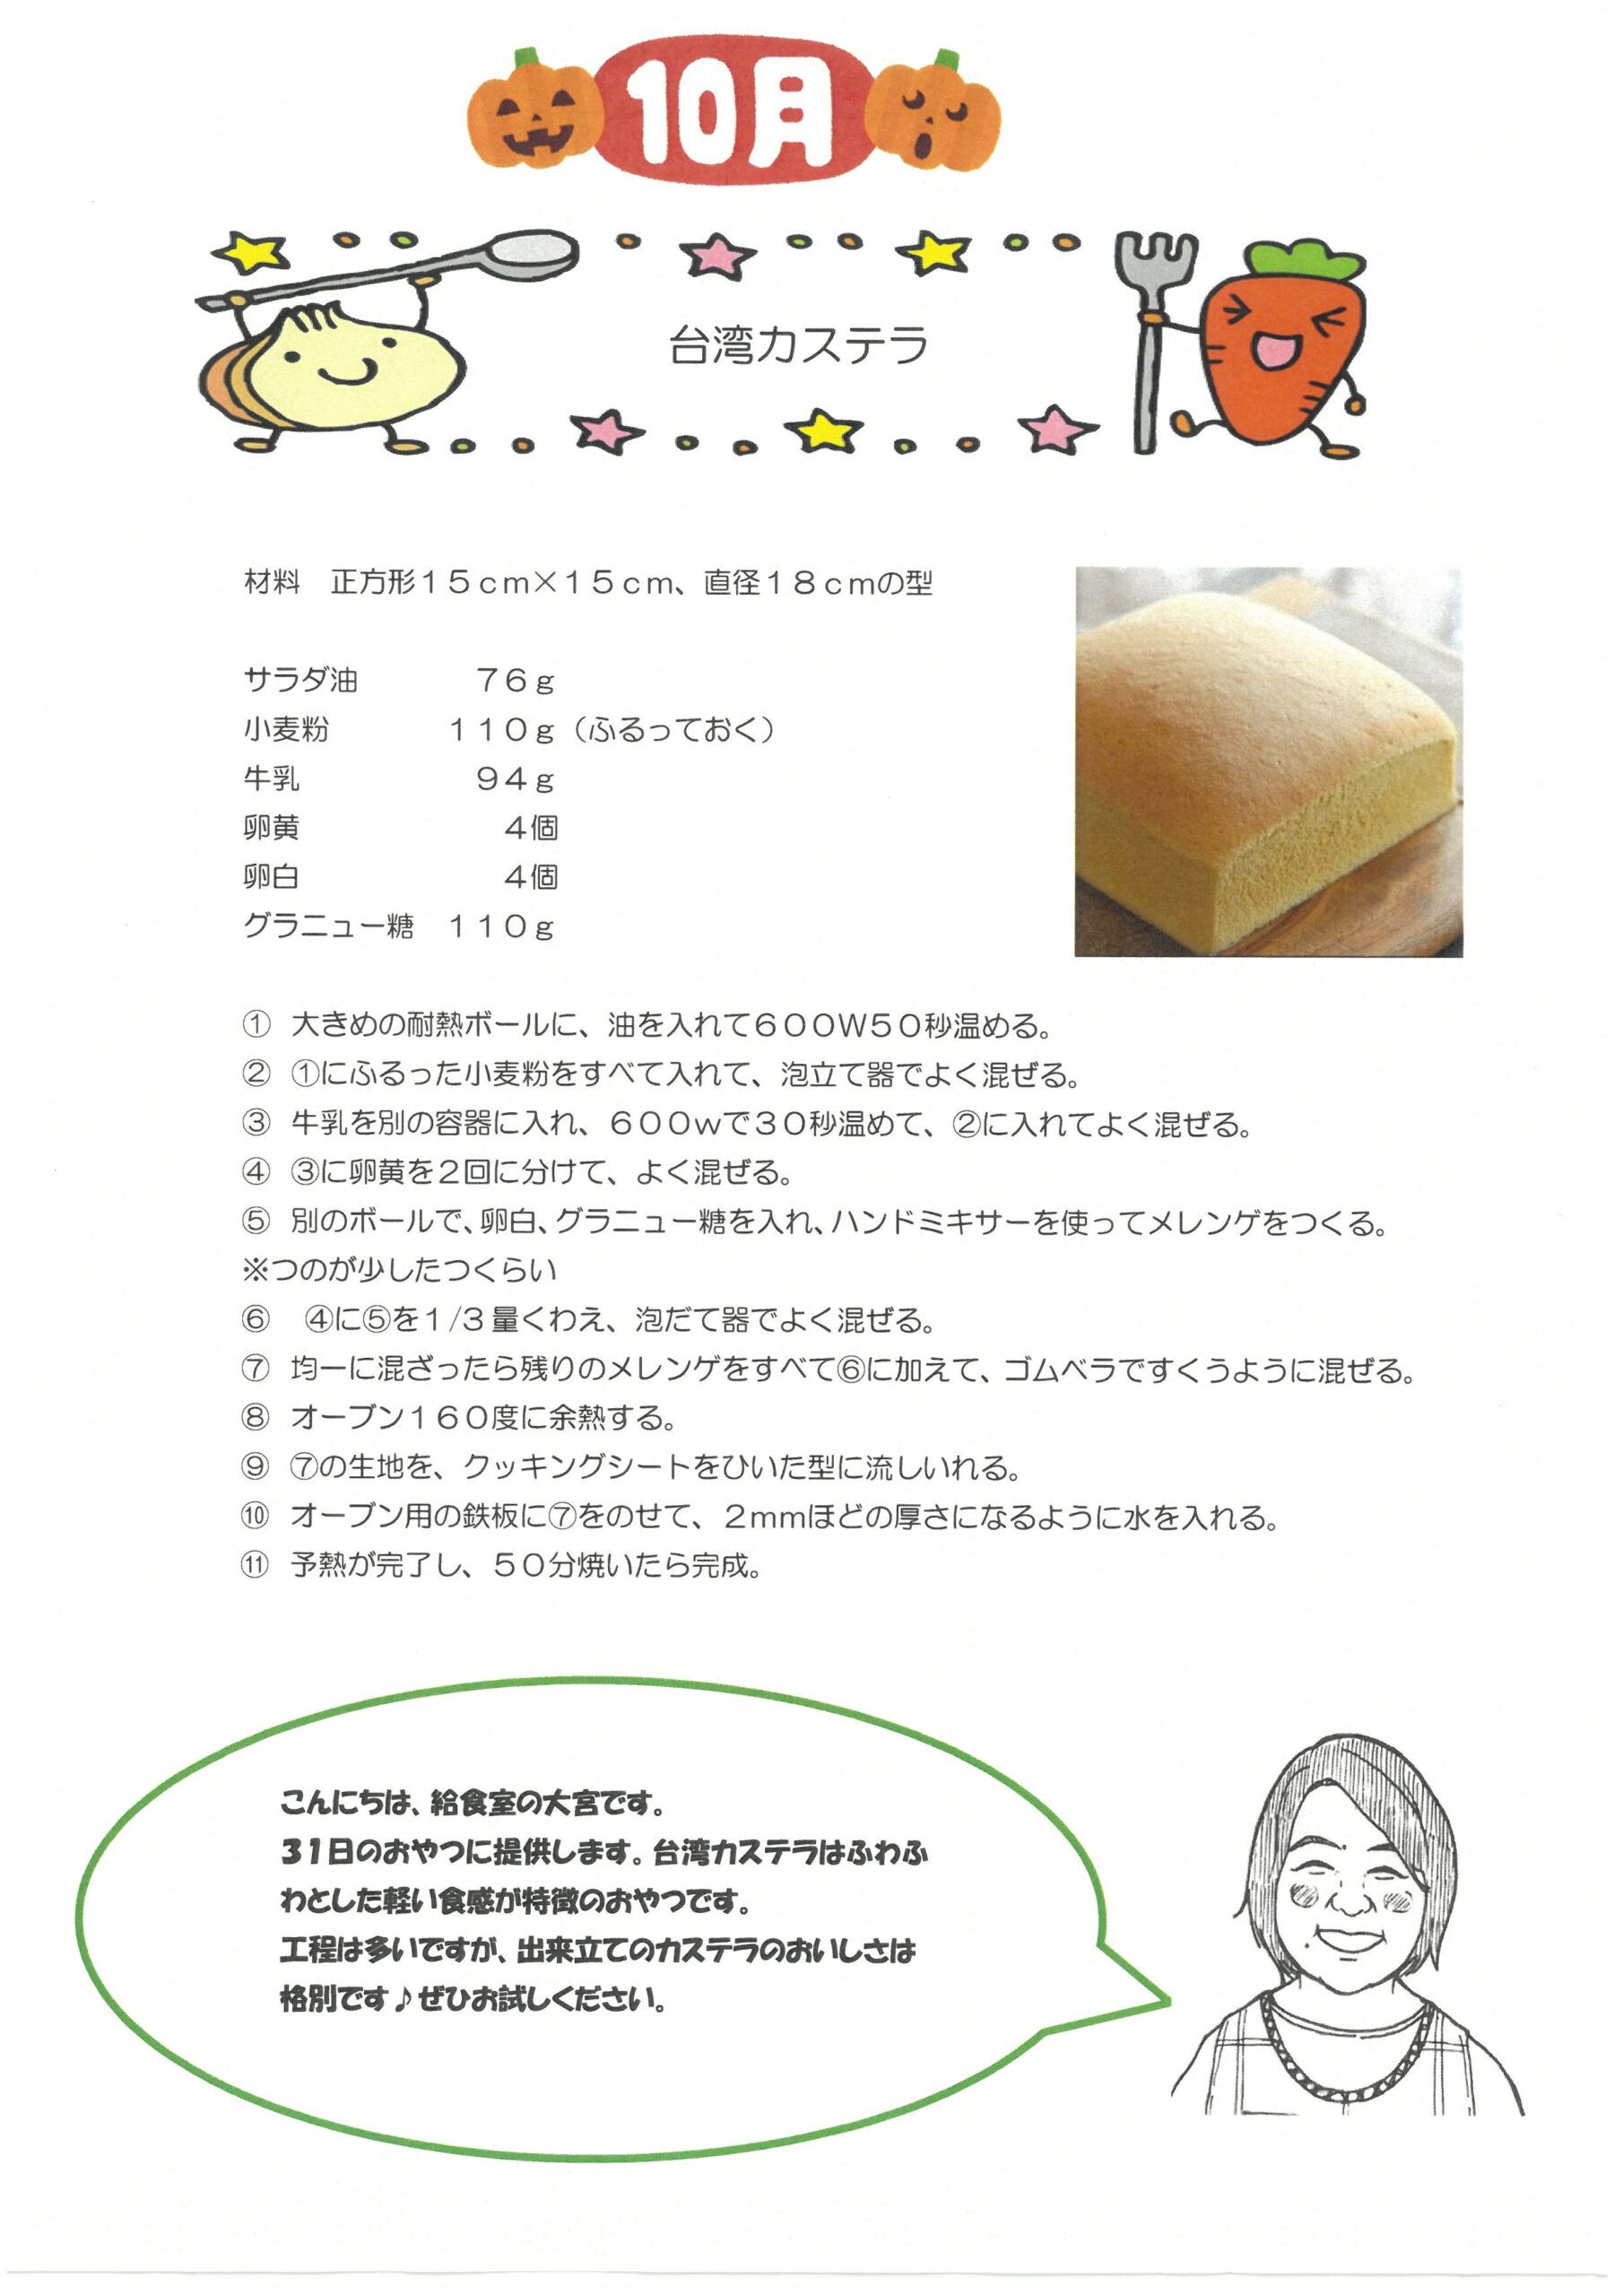 10月
台湾カステラ
材料　正方形１５ｃｍ×１５ｃｍ、直径１８ｃｍの型
サラダ油　７６ｇ
小麦粉　１１０ｇ（ふるっておく）
牛乳　９４ｇ
卵黄　４個
卵白　４個
グラニュー糖　１１０ｇ
① 大きめの耐熱ボールに、油を入れて６００Ｗ５０秒温める。
② ①にふるった小麦粉をすべて入れて、泡立て器でよく混ぜる。
③ 牛乳を別の容器に入れ、６００ｗで３０秒温めて、②に入れてよく混ぜる。
④ ③に卵黄を２回に分けて、よく混ぜる。
⑤ 別のボールで、卵白、グラニュー糖を入れ、ハンドミキサーを使ってメレンゲをつくる。
※つのが少したつくらい
⑥　④に⑤を１/３量くわえ、泡だて器でよく混ぜる。
⑦ 均一に混ざったら残りのメレンゲをすべて⑥に加えて、ゴムベラですくうように混ぜる。
⑧ オーブン１６０度に余熱する。
⑨ ⑦の生地を、クッキングシートをひいた型に流しいれる。
⑩ オーブン用の鉄板に⑦をのせて、２ｍｍほどの厚さになるように水を入れる。
⑪ 予熱が完了し、５０分焼いたら完成。
こんにちは、給食室の大宮です。
３１日のおやつに提供します。台湾カステラはふわふ
わとした軽い食感が特徴のおやつです。
工程は多いですが、出来立てのカステラのおいしさは
格別です♪ぜひお試しください。